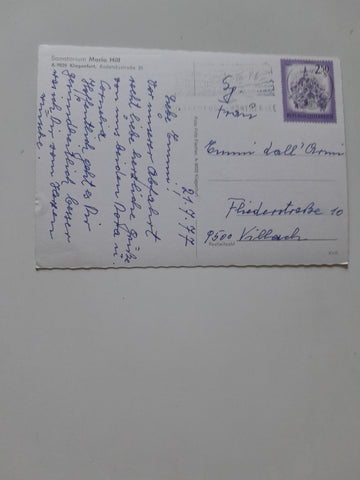 Sanatorium Maria Hilf
A-9020 Klagenfurt, Radetzkystraße 35
21.7.77
Liebe Emmi!
Vor unserer Abfahrt
recht liebe herzliche Grüße
von uns beiden Dorli u.
Cornelia
Hoffentlich geht es Dir
gesundheitlich besser
was ich Dir vom Herzen
wünsche.
REPUBLIK ÖSTERREICH
Frau
Emmi dall'Armi
Fliederstraße 10
9500 Villach
Postleitzahl